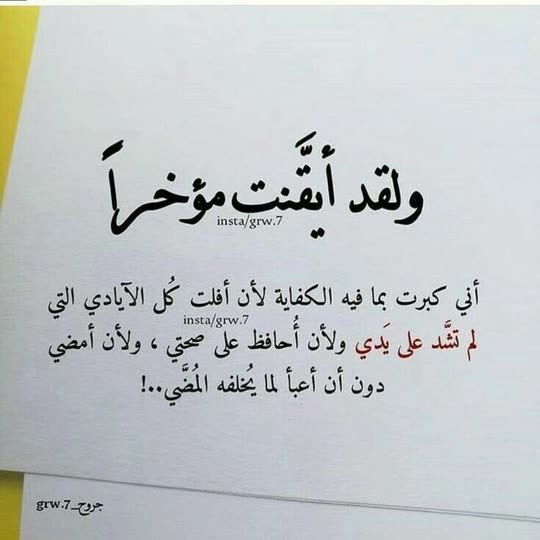 ولقد أيقَّنت مؤخراً
insta/grw.7
أني كبرت بما فيه الكفاية لأن أفلت كُل الآيادي التي
insta/grw.7
لم تشَّد على يَدي ولأن أُحافظ على صحتي ، ولأن أمضي
دون أن أعبأ لما يُخلفه المُضَّي..!
جروح_grw.7